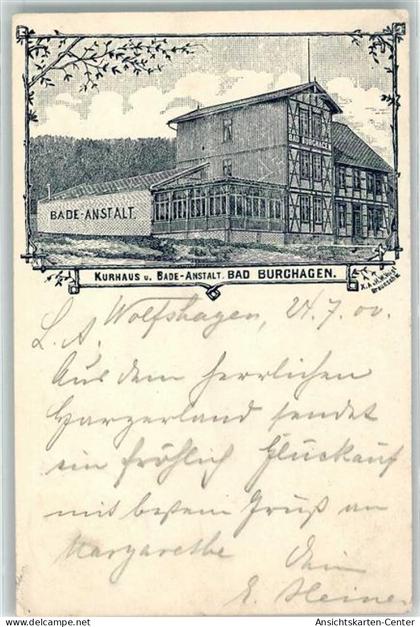 BURCHAGEN
BADE-ANSTALT.
KURHAUS U. BADE-ANSTALT. BAD BURCHAGEN.
Wolfshagen, 24.7.00.
L. A.
Aus dem herrlichen
Harzerland sendet
ein fröhlich Glückauf
mit bestem Gruß an
Margarethe Dein
E. Heine
Ansichtskarten-Center